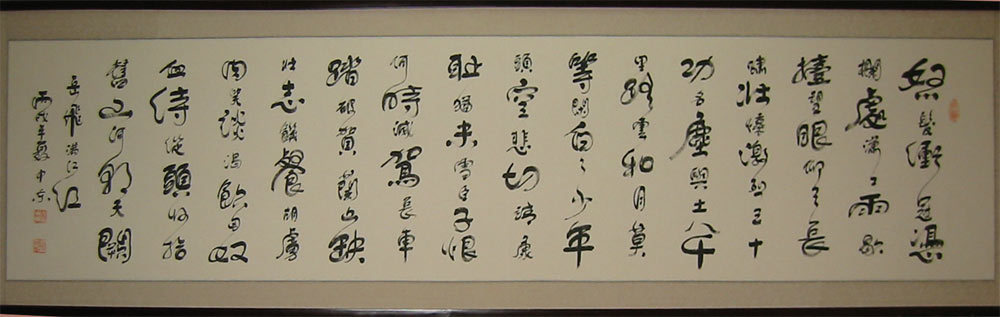 怒髮衝冠憑
欄處瀟瀟雨歇
擡望眼仰天長
嘯壯懷激烈三十
功名塵與土八千
里路雲和月莫
等閑白了少年
頭空悲切靖康
恥猶未雪臣子恨
何時滅駕長車
踏破賀蘭山缺
壯志饑餐胡虜
肉笑談渴飲匈奴
血待從頭收拾
舊山河朝天闕
岳飛滿江红
丙戌年夏